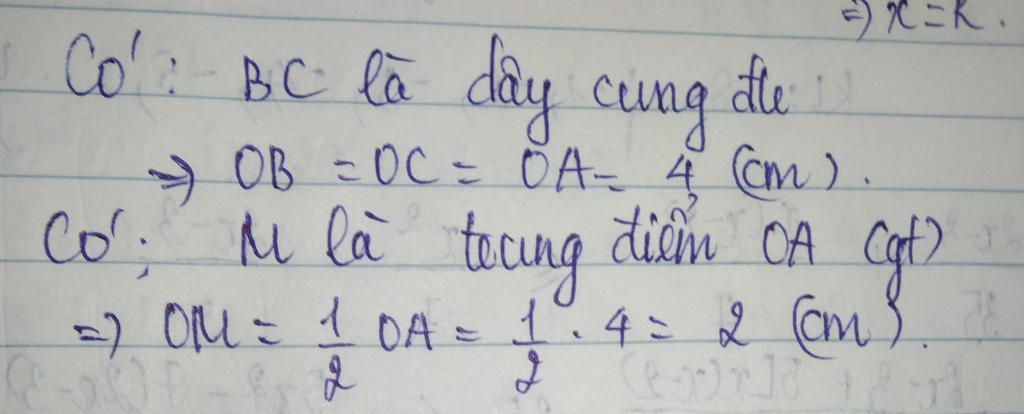 =) x = R.
Có: BC là dây cung đtr
=> OB = OC = OA = 4 (cm).
Có: M là trung điểm OA (gt)
=) OM = 1/2 OA = 1/2 . 4 = 2 (cm).